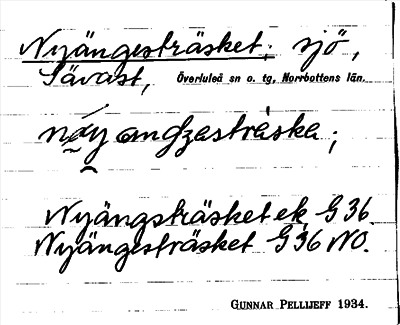 Nyängesträsket; sjö,
Sävast, Överluleå sn o. tg, Norrbottens län.
Nyängsträsket ek G 36
Nyängesträsket G 36 NO.
GUNNAR PELLIJEFF 1934.